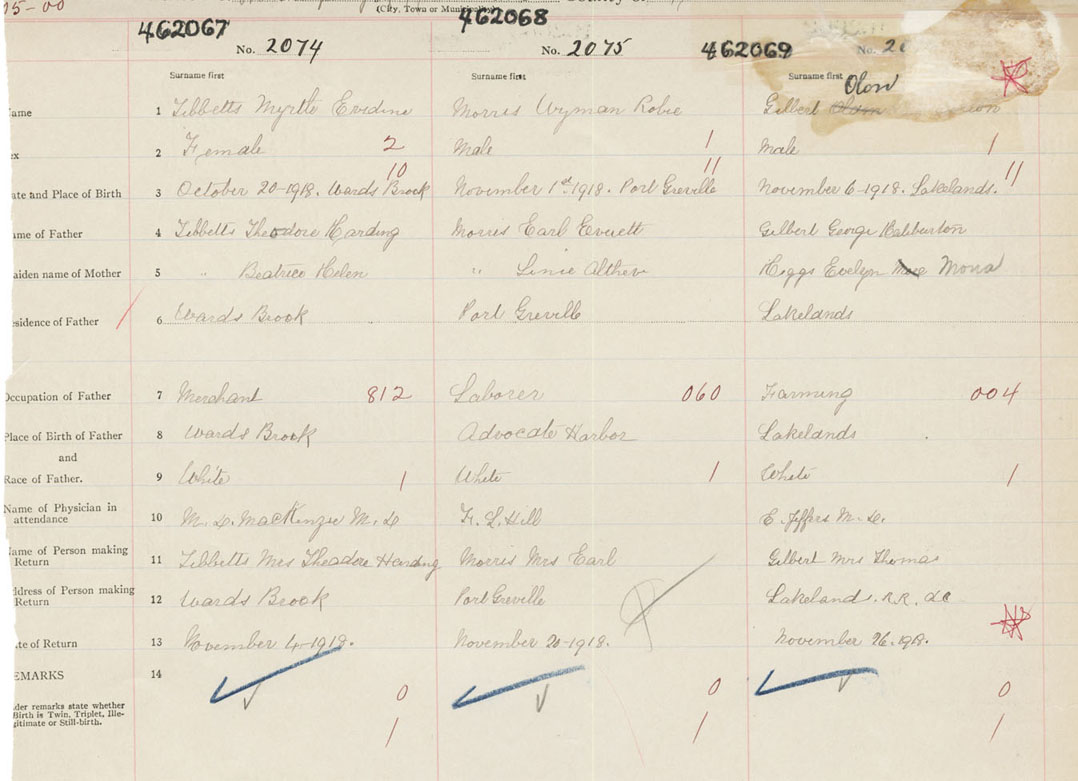 05-00
(City, Town or Municipality)
462067 462068 462069
No. 2074 No. 2075 No.
Surname first Surname first Surname first Olon
ame 1 Tibbetts Myrtle Evidine Morris Wyman Robie Gilbert
ex 2 Female 2 Male 1 Male 1
10 11 11
ate and Place of Birth 3 October 20-1918. Wards Brook November 1st 1918. Port Greville November 6-1918. Lakelands.
me of Father 4 Tibbetts Theodore Harding Morris Earl Everett Gilbert George Haliburton
aiden name of Mother 5 " Beatrice Helen " Higgs Evelyn Mona
esidence of Father 6 Wards Brook Port Greville Lakelands
Occupation of Father 7 Merchant 812 Laborer 060 Farming 004
Place of Birth of Father 8 Wards Brook Advocate Harbor Lakelands
and
Race of Father. 9 White 1 White 1 White 1
Name of Physician in
attendance 10 M. D. MacKenzie M. D F. L. Hill E. Jeffers M. D.
Name of Person making
Return 11 Tibbetts Mrs Theodore Harding Morris Mrs Earl Gilbert Mrs Thomas
ddress of Person making
Return 12 Wards Brook Port Greville Lakelands. R.R.
te of Return 13 November 4-1918. November 20-1918. November 26-1918.
EMARKS 14
der remarks state whether
Birth is Twin, Triplet, Ille-
gitimate or Still-birth.
0 0 0
1 1 1